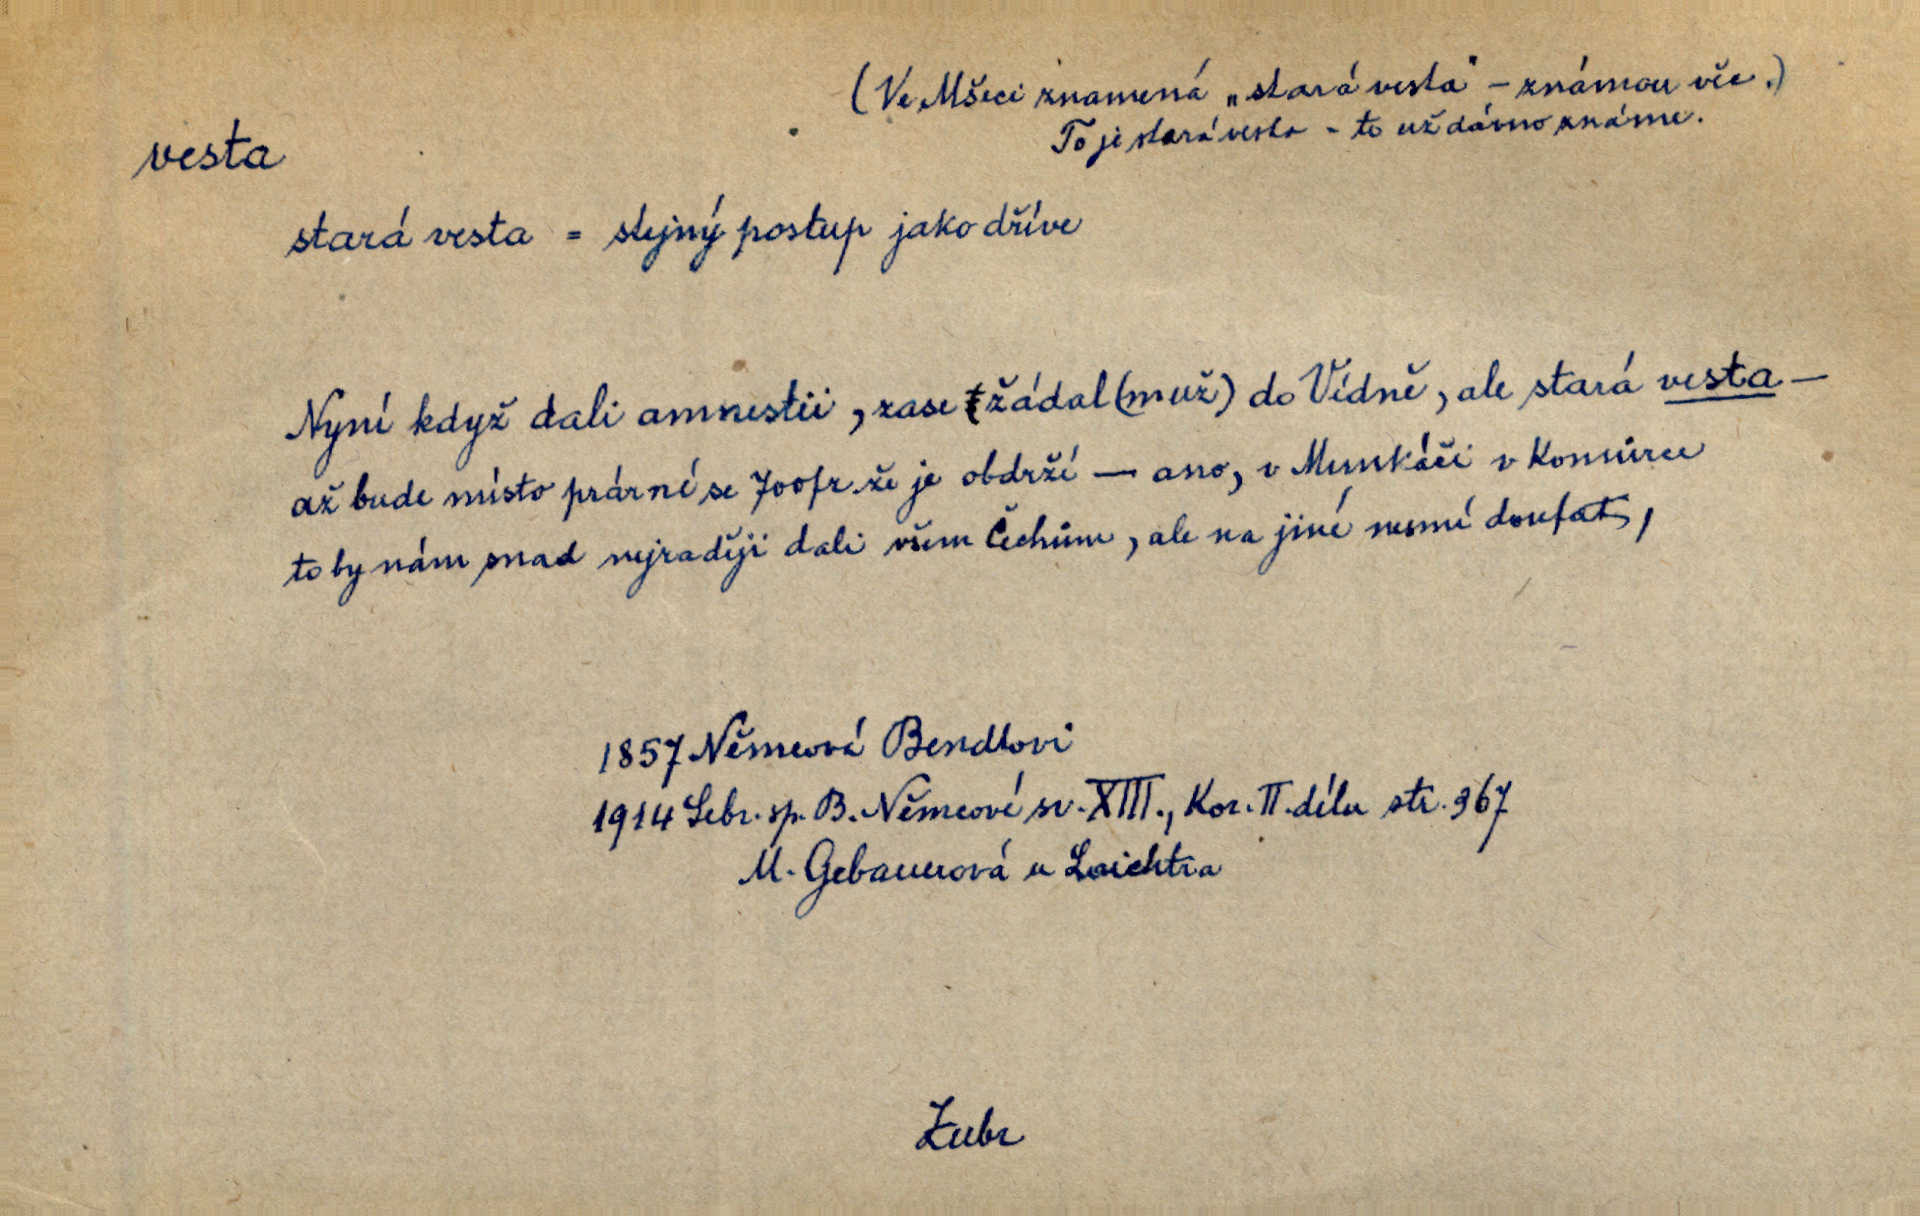 (Ve Mšeci znamená „stará vesta" – známou věc.)
To je stará vesta - to už dávno známe.
vesta
stará vesta = stejný postup jako dříve
Nyní když dali amnestii, zase žádal (muž) do Vídně, ale stará vesta —
až bude místo prázné se 700fr. že je obdrží — ano, v Munkáči v Komürce
to by nám snad nejraději dali všem Čechům, ale na jiné nesmí doufat,
1857 Němcová Bendlovi
1914 Sebr. sp. B. Němcové sv. XIII., Kor. II. dílu str. 367
M. Gebauerová u Laichtra
Zubr